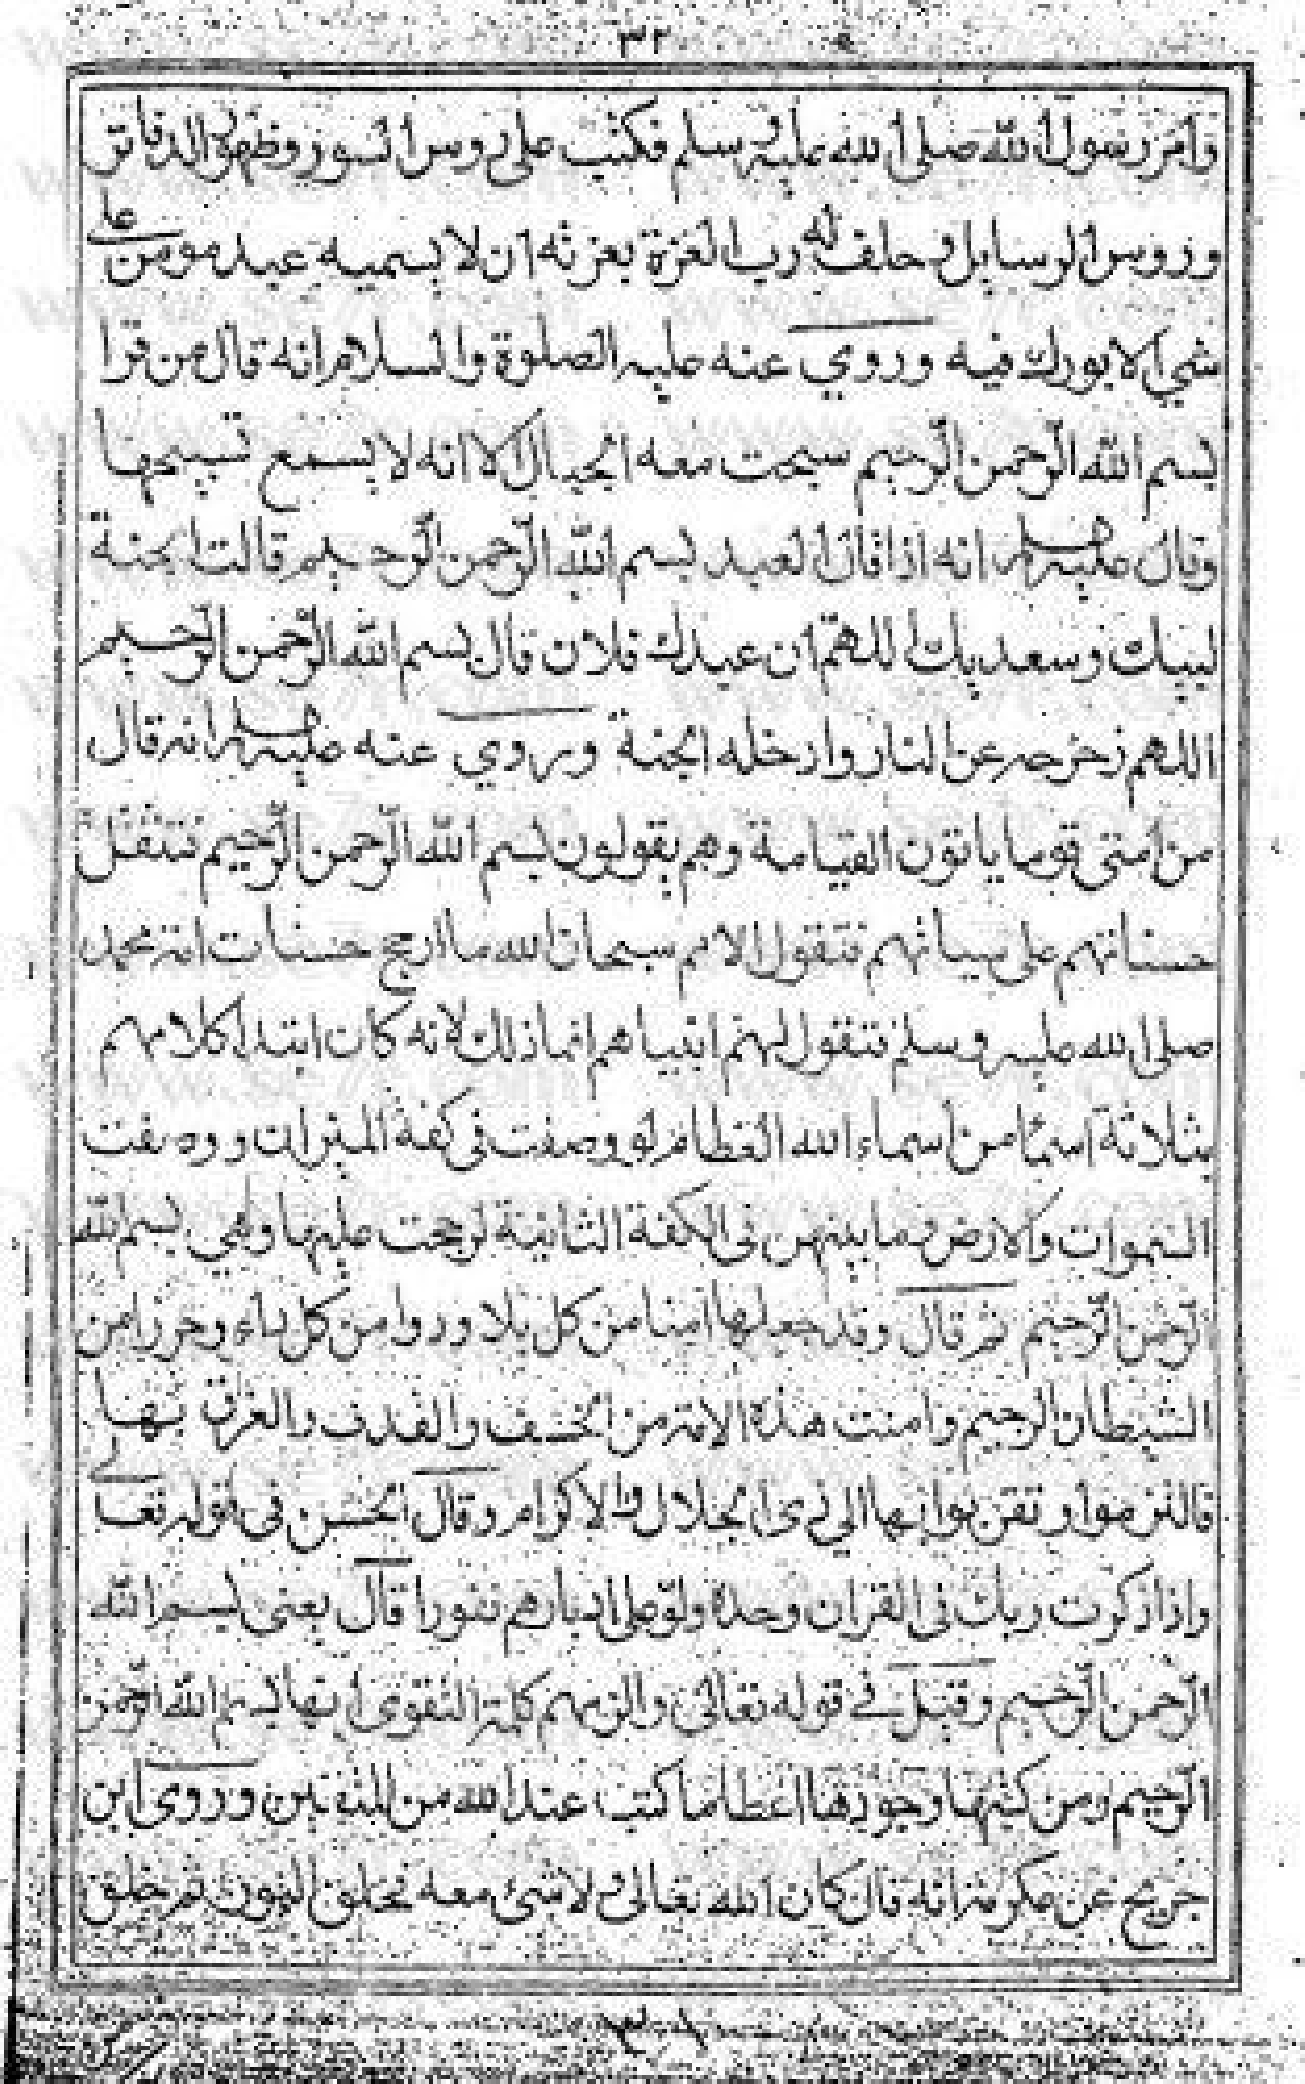 ٣٢
وامر رسول الله صلى الله عليه وسلم فكتبت على روس السور وظهور الدفاتر
وروس الرسايل وحلف له رب العزة بعزته ان لا يسميه عبد مومن على
شي الا بورك فيه وروي عنه عليه الصلوة والسلام انه قال من قرا
بسم الله الرحمن الرحيم سبحت معه الجبال الا انه لا يسمع تسبيحها
وقال عليه انه اذا قال العبد بسم الله الرحمن الرحيم قالت الجنة
لبيك وسعديك اللهم ان عبدك فلان قال بسم الله الرحمن الرحيم
اللهم زحزحه عن النار وادخله الجنة وروي عنه عليه انه قال
من امتى قوما ياتون القيامة وهم يقولون بسم الله الرحمن الرحيم فتثقل
حسناتهم على سياتهم فتقول الامم سبحان الله ما ارجح حسنات امة محمد
صلى الله عليه وسلم فتقول لهم انبياهم انما ذلك لانه كان ابتدا كلامهم
بثلاثة اسما من اسماء الله العظام لو وضعت فى كفة الميزان ووضعت
السموات والارض وما بينهن فى الكفة الثانية لرجحت عليها وهي بسم الله
الرحمن الرحيم ثم قال وقد جعلها امنا من كل بلا ودوا من كل داء وحرزا من
الشيطان الرجيم وامنت هذه الامة من الخسف والقذف والغرق بها
فالزموا وتقربوا بها الى ذى الجلال والاكرام وقال الحسن فى قوله تعالى
واذا ذكرت ربك فى القران وحده ولوا على ادبارهم نفورا قال يعنى بسم الله
الرحمن الرحيم وقيل في قوله تعالى والزمهم كلمة التقوى انها بسم الله الرحمن
الرحيم ومن كتبها وجودها اعظاما كتب عند الله من المتقين وروى ابن
جريح عن عكرمة انه قال كان الله تعالى ولا شى معه فخلق النور ثم خلق